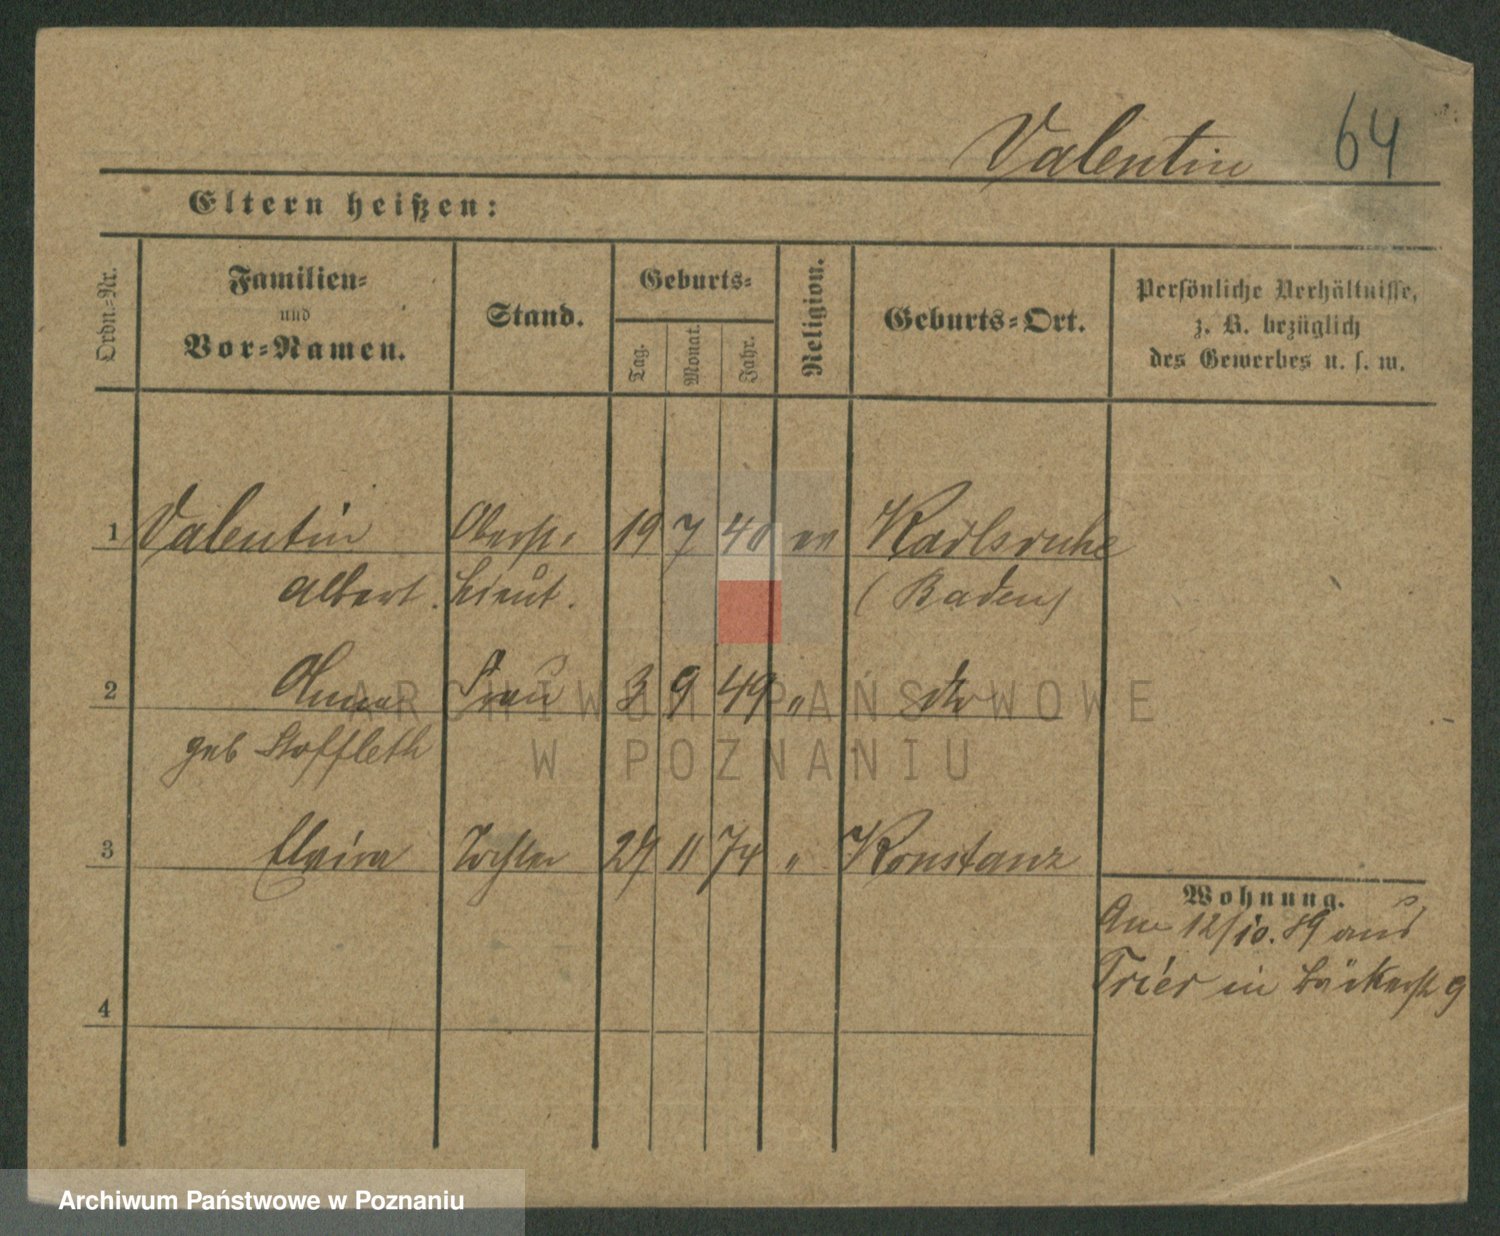 Valentin 64
Eltern heißen:
Ordn.-Nr.
Familien-
und
Vor-Namen.
Stand.
Geburts-
Tag.
Monat.
Jahr.
Religion.
Geburts-Ort.
Persönliche Verhältnisse,
z. B. bezüglich
des Gewerbes u. s. w.
1 Valentin Oberst- 19 7 40 ev Karlsruhe
Albert. Lieut. (Baden)
2 Anna Frau 3 9 49 " dto
geb Stoffleth
3 Elvira Tochter 27 11 74 " Konstanz
Wohnung.
Am 12/10. 89 aus
Trier in Bäckerstr 9
4
ARCHIWUM PAŃSTWOWE
W POZNANIU
Archiwum Państwowe w Poznaniu